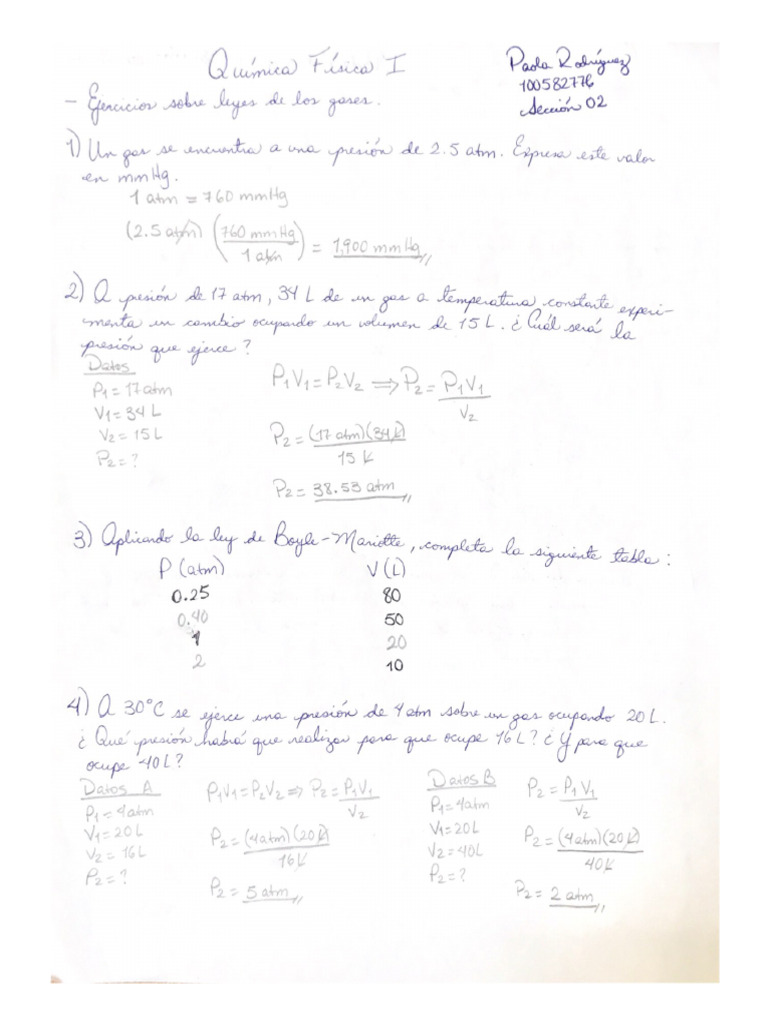 Química Física I
Paola Rodríguez
100582776
Sección 02
- Ejercicios sobre leyes de los gases.
1) Un gas se encuentra a una presión de 2.5 atm. Expresa este valor
en mmHg.
1 atm = 760 mmHg
(2.5 atm) (760 mmHg / 1 atm) = 1,900 mmHg
2) A presión de 17 atm, 34 L de un gas a temperatura constante experi-
menta un cambio ocupando un volumen de 15 L. ¿Cuál será la
presión que ejerce?
Datos
P1 = 17 atm
V1 = 34 L
V2 = 15 L
P2 = ?
P1V1 = P2V2 ⟹ P2 = P1V1 / V2
P2 = (17 atm)(34 L) / 15 L
P2 = 38.53 atm
3) Aplicando la ley de Boyle-Mariotte, completa la siguiente tabla:
P (atm) V (L)
0.25 80
0.40 50
1 20
2 10
4) A 30°C se ejerce una presión de 4 atm sobre un gas ocupando 20 L.
¿Qué presión habrá que realizar para que ocupe 16 L? ¿Y para que
ocupe 40 L?
Datos A
P1 = 4 atm
V1 = 20 L
V2 = 16 L
P2 = ?
P1V1 = P2V2 ⟹ P2 = P1V1 / V2
P2 = (4 atm)(20 L) / 16 L
P2 = 5 atm
Datos B
P1 = 4 atm
V1 = 20 L
V2 = 40 L
P2 = ?
P2 = P1V1 / V2
P2 = (4 atm)(20 L) / 40 L
P2 = 2 atm